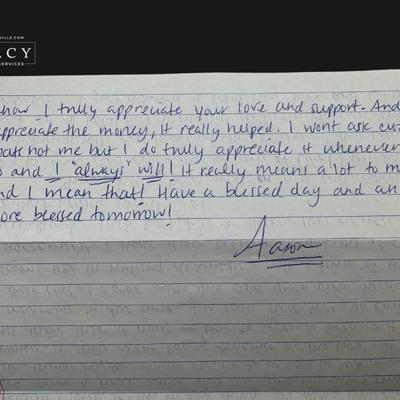 VILLE.COM
ACY
SERVICES
know I trully appreciate your love and support. And
appreciate the money, it really helped. I wont ask cuz
thats not me but I do trully appreciate it whenever
and I "always" will! It really means a lot to m
and I mean that! Have a blessed day and an
ore blessed tomorrow!
Aaron